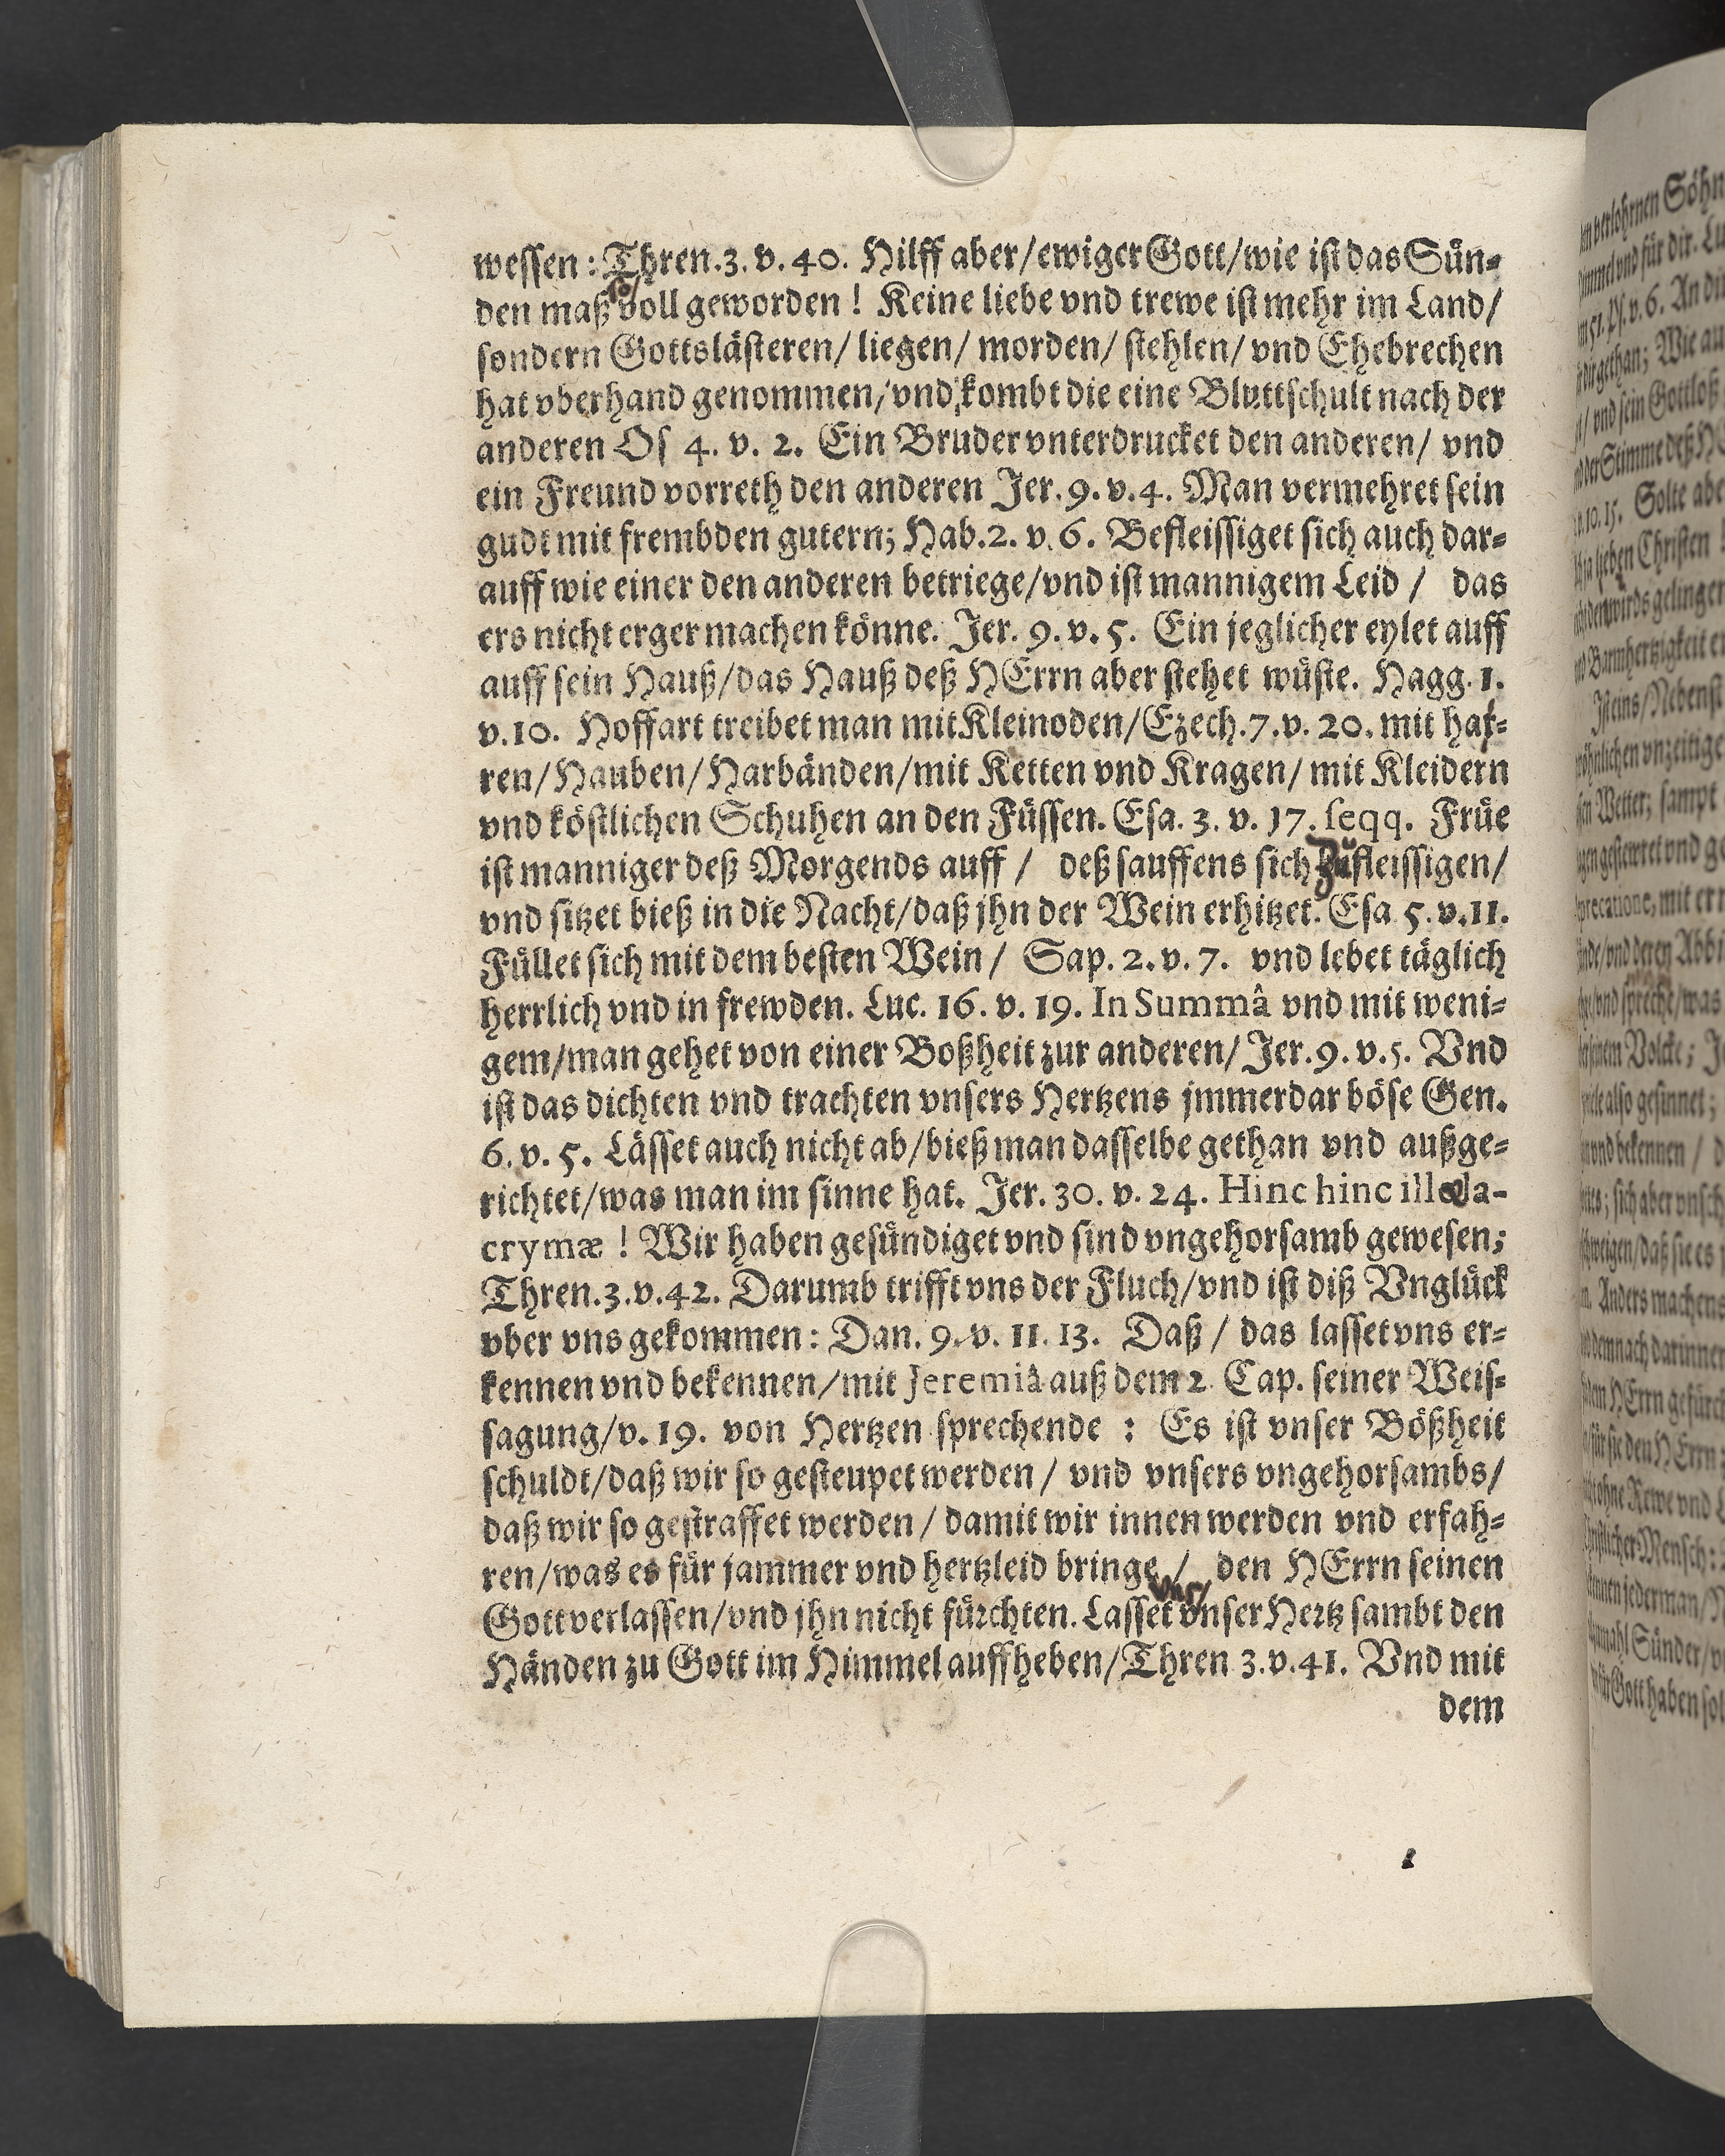 wessen: Thren.3. v. 40. Hilff aber/ewiger Gott/wie ist das Sün-
so/
den maß voll geworden! Keine liebe vnd trewe ist mehr im Land/
sondern Gottslästeren/ liegen/ morden/ stehlen/ vnd Ehebrechen
hat vberhand genommen/ vnd kombt die eine Bluttschult nach der
anderen Os 4. v. 2. Ein Bruder vnterdrucket den anderen/ vnd
ein Freund vorreth den anderen Jer. 9. v. 4. Man vermehret sein
gudt mit frembden gutern; Hab.2. v. 6. Befleissiget sich auch dar-
auff wie einer den anderen betriege/vnd ist mannigem Leid / das
ers nicht erger machen könne. Jer. 9. v. 5. Ein jeglicher eylet auff
auff sein Hauß/das Hauß deß HErrn aber stehet wüste. Hagg. 1.
v.10. Hoffart treibet man mit Kleinoden/Ezech.7.v. 20. mit har-
ren/Hauben/Harbänden/mit Ketten vnd Kragen/ mit Kleidern
vnd köstlichen Schuhen an den Füssen. Esa. 3. v. 17. seqq. Früe
ist manniger deß Morgends auff / deß sauffens sich zufleissigen/
vnd sitzet bieß in die Nacht/daß jhn der Wein erhitzet. Esa 5. v.11.
Füllet sich mit dem besten Wein/ Sap. 2. v. 7. vnd lebet täglich
herrlich vnd in frewden. Luc. 16. v. 19. In Summâ vnd mit weni-
gem/man gehet von einer Boßheit zur anderen/ Jer. 9. v. 5. Vnd
ist das dichten vnd trachten vnsers Hertzens jmmerdar böse Gen.
6. v. 5. Lässet auch nicht ab/bieß man dasselbe gethan vnd außge-
richtet/was man im sinne hat. Jer. 30. v. 24. Hinc hinc illæ la-
crymæ ! Wir haben gesündiget vnd sind vngehorsamb gewesen;
Thren.3.v.42. Darumb trifft vns der Fluch/vnd ist diß Vnglück
vber vns gekommen: Dan. 9. v. 11. 13. Daß / das lasset vns er-
kennen vnd bekennen/mit Jeremiâ auß dem 2 Cap. seiner Weis-
sagung/v. 19. von Hertzen sprechende : Es ist vnser Bößheit
schuldt/daß wir so gesteupet werden / vnd vnsers vngehorsambs/
daß wir so gestraffet werden/ damit wir innen werden vnd erfah-
ren/was es für jammer vnd hertzleid bringe / den HErrn seinen
vns/
Gott verlassen/vnd jhn nicht fürchten. Lasset vnser Hertz sambt den
Händen zu Gott im Himmel auffheben/Thren 3.v.41. Vnd mit
dem